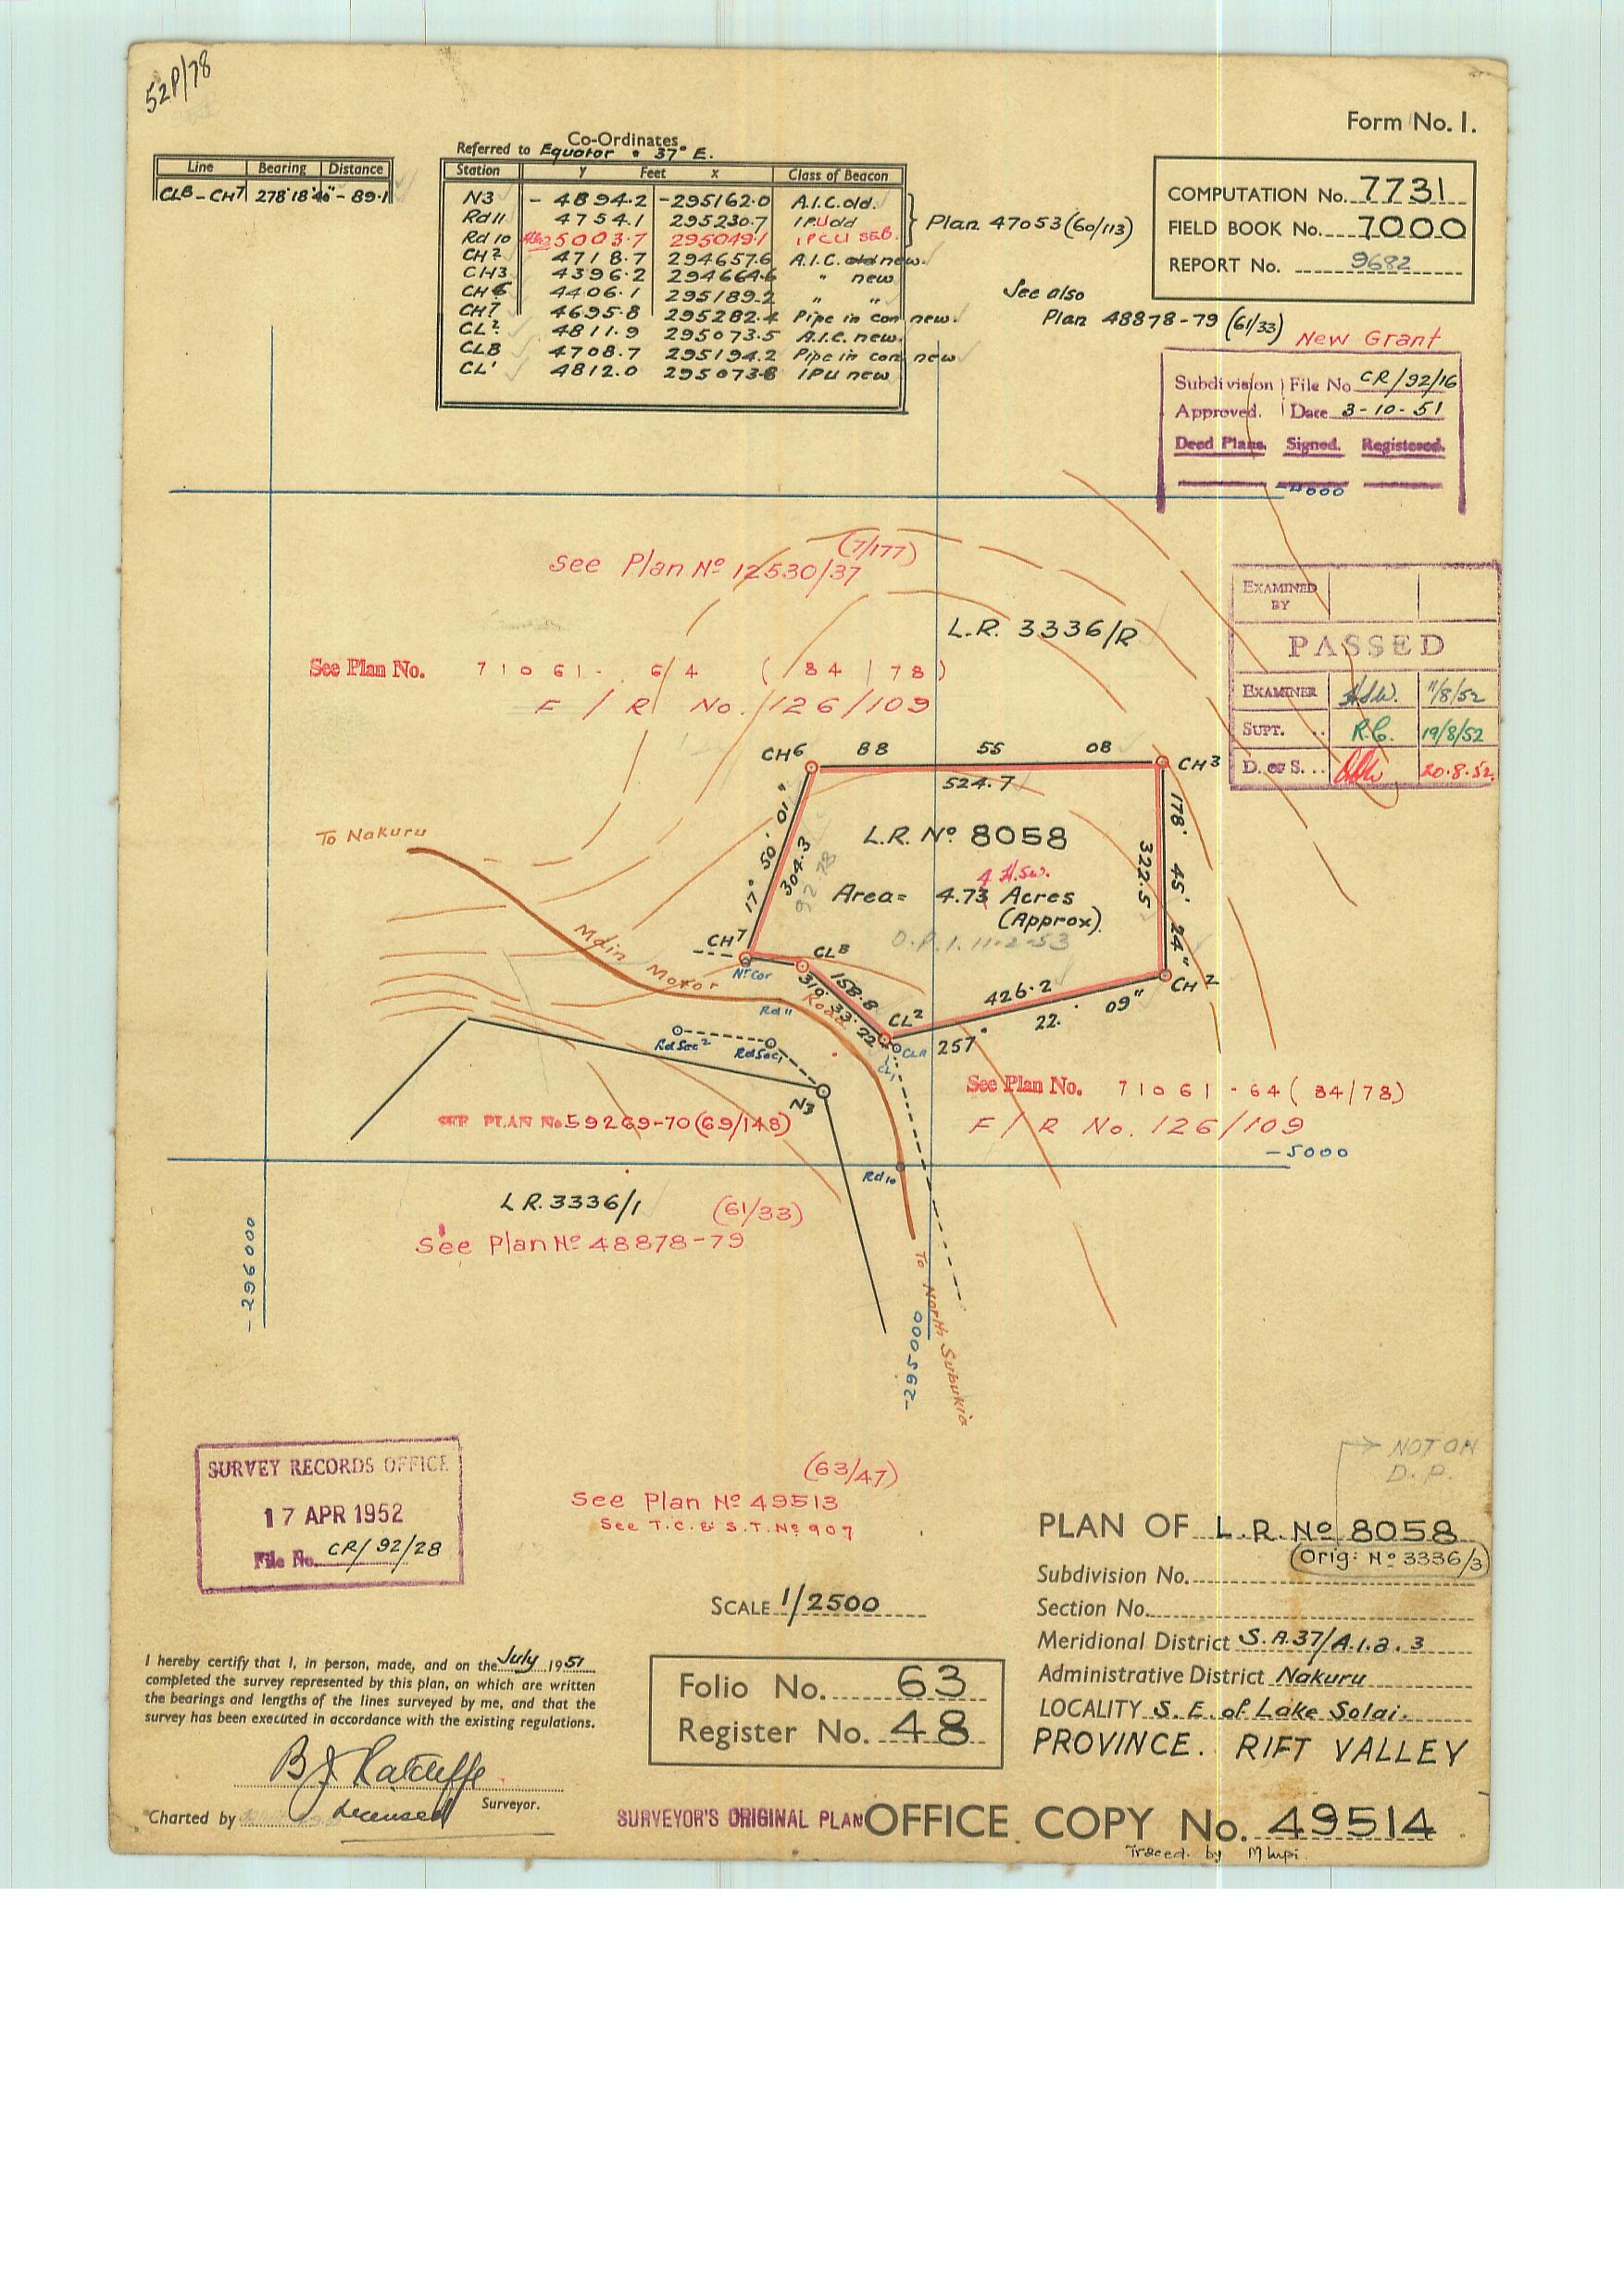 52P/78
Form No. 1.
Line Bearing Distance
CLB - CH7 278° 18' 40" - 89.1
Co-Ordinates
Referred to Equator & 37° E.
Station y Feet x Class of Beacon
N3 - 4894.2 -295162.0 A.I.C. old.
Rd 11 4754.1 295230.7 IPU old
Rd 10 5003.7 295049.1 IPCU SEB.
CH2 4718.7 294657.6 A.I.C. old new.
CH3 4396.2 294664.6 " new
CH6 4406.1 295189.2 " "
CH7 4695.8 295282.4 Pipe in con new.
CL2 4811.9 295073.5 A.I.C. new.
CLB 4708.7 295194.2 Pipe in con new
CL1 4812.0 295073.8 IPU new
Plan 47053 (60/113)
COMPUTATION No. 7731
FIELD BOOK No. 7000
REPORT No. 9682
See also
Plan 48878-79 (61/33)
New Grant
Subdivision File No CR/92/16
Approved. Date 3-10-51
Deed Plans. Signed. Registered.
-4000
(7/177)
See Plan No 12530/37
L.R. 3336/R
EXAMINED
BY
PASSED
EXAMINER H.S.W. 11/8/52
SUPT. .. R.C. 19/8/52
D. OF S. .. 20.8.52
See Plan No. 71061-64 (84/78)
F/R No. 126/109
CH6 88 55 08 CH3
524.7
To Nakuru
17° 50' 01"
304.3
92 78
L.R. No 8058
4 H.S.W.
Area= 4.73 Acres
(Approx)
D.P.1. 11-2-53
178° 45' 24"
322.5
CH7
CLB
Nr Cor
Main Motor Road
158.8
310° 33' 22"
CH2
426.2
257° 22' 09"
CL2
CLA
CL1
Rd 11
RdSec2 RdSec1
N3
See Plan No. 71061-64 (84/78)
F/R No. 126/109
SEE PLAN No 59269-70 (69/148)
-5000
Rd 10
L.R. 3336/1 (61/33)
See Plan No 48878-79
-296000
-295000
To North Subukia
SURVEY RECORDS OFFICE
17 APR 1952
File No. CR/92/28
(63/47)
See Plan No 49513
See T.C. & S.T. No 907
NOT ON
D.P.
PLAN OF L.R. No 8058
(Orig: No 3336/3)
Subdivision No.
Section No.
Meridional District S.A.37/A.1.a.3
Administrative District Nakuru
LOCALITY S.E. of Lake Solai.
PROVINCE. RIFT VALLEY
SCALE 1/2500
I hereby certify that I, in person, made, and on the July 1951
completed the survey represented by this plan, on which are written
the bearings and lengths of the lines surveyed by me, and that the
survey has been executed in accordance with the existing regulations.
B J Ratcliffe
Licensed Surveyor.
Charted by
Folio No. 63
Register No. 48
SURVEYOR'S ORIGINAL PLAN
OFFICE COPY No. 49514
Traced by